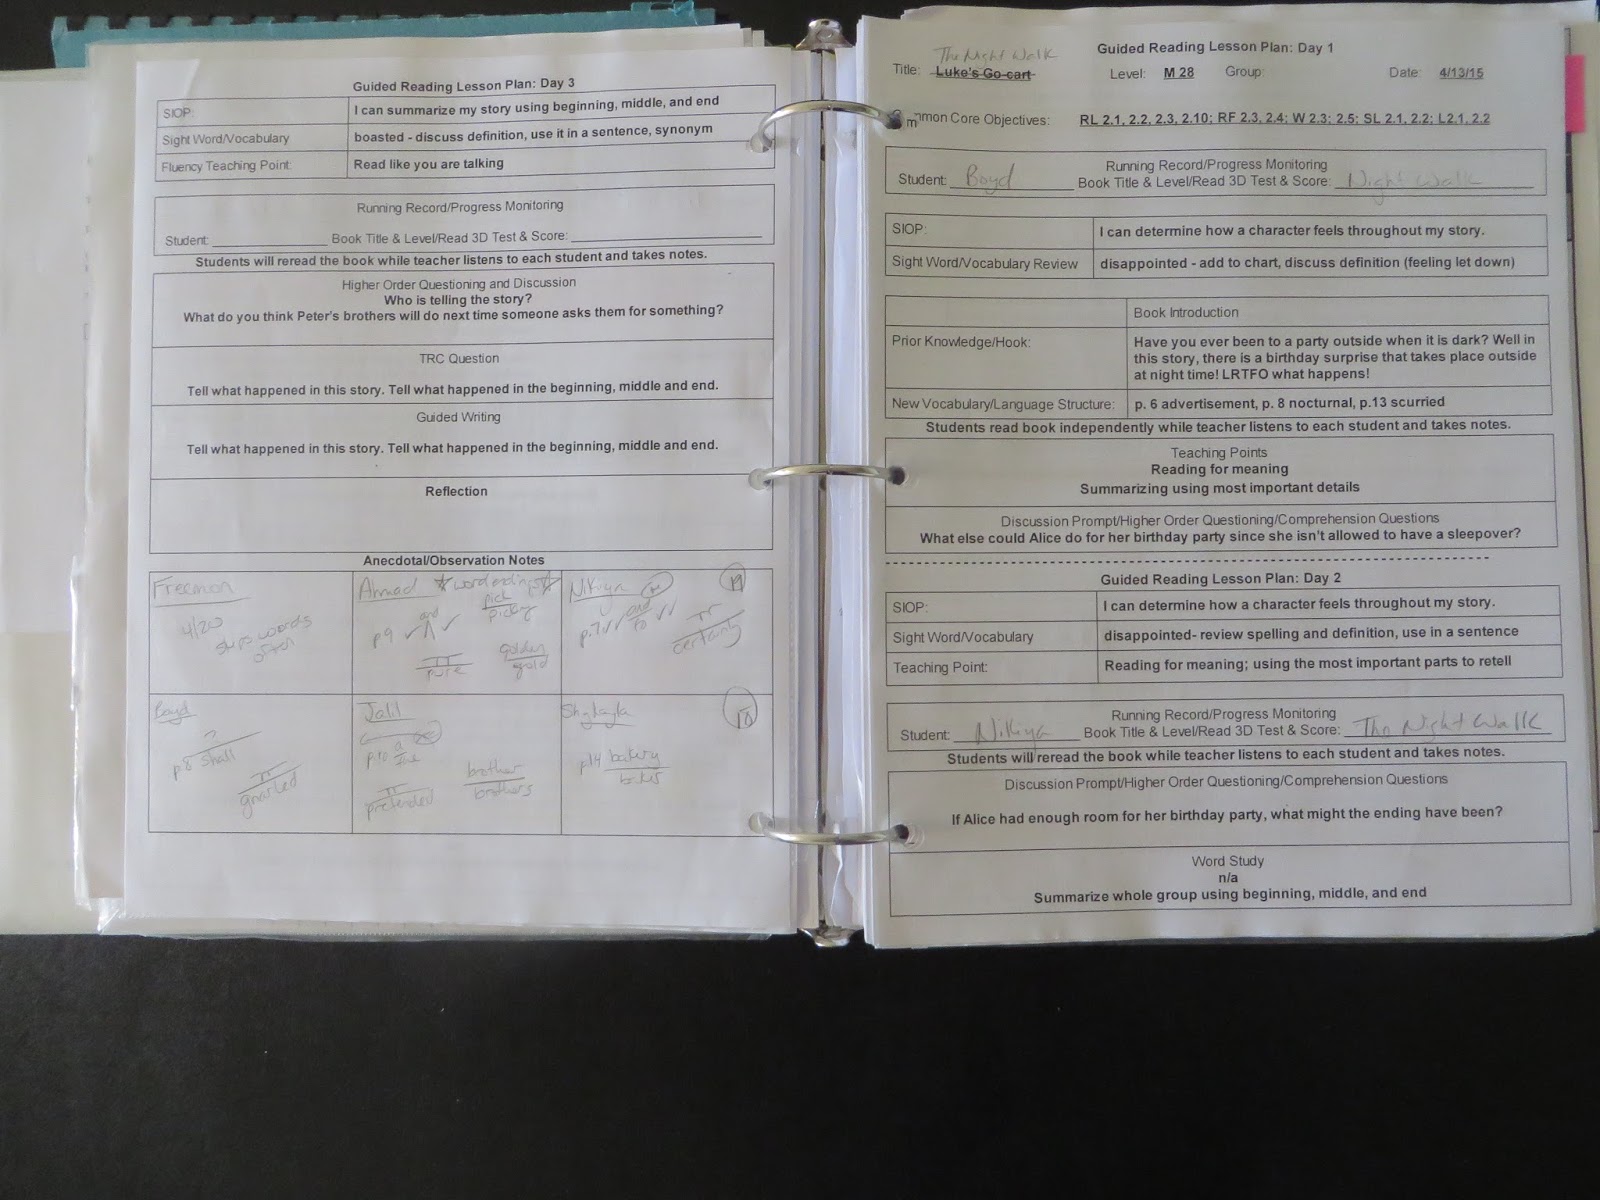 Guided Reading Lesson Plan: Day 3
SIOP: I can summarize my story using beginning, middle, and end
Sight Word/Vocabulary boasted - discuss definition, use it in a sentence, synonym
Fluency Teaching Point: Read like you are talking
Running Record/Progress Monitoring
Student: Book Title & Level/Read 3D Test & Score:
Students will reread the book while teacher listens to each student and takes notes.
Higher Order Questioning and Discussion
Who is telling the story?
What do you think Peter's brothers will do next time someone asks them for something?
TRC Question
Tell what happened in this story. Tell what happened in the beginning, middle and end.
Guided Writing
Tell what happened in this story. Tell what happened in the beginning, middle and end.
Reflection
Anecdotal/Observation Notes
Freemon
4/20
skips words
often
Ahmad word ending
pick
picking
and
p9
pure
golden
gold
Nikiya
19
p.7
and
to
certainly
Boyd
p8 shall
gnarled
Jalil
p.10 a
the
pretended
brother
brothers
Shykayla
18
p14 bakery
The Night Walk
Guided Reading Lesson Plan: Day 1
Title: Luke's Go-cart Level: M 28 Group: Date: 4/13/15
mmon Core Objectives: RL 2.1, 2.2, 2.3, 2.10; RF 2.3, 2.4; W 2.3; 2.5; SL 2.1, 2.2; L2.1, 2.2
Running Record/Progress Monitoring
Student: Boyd Book Title & Level/Read 3D Test & Score: Night Walk
SIOP: I can determine how a character feels throughout my story.
Sight Word/Vocabulary Review disappointed - add to chart, discuss definition (feeling let down)
Book Introduction
Prior Knowledge/Hook: Have you ever been to a party outside when it is dark? Well in
this story, there is a birthday surprise that takes place outside
at night time! LRTFO what happens!
New Vocabulary/Language Structure: p. 6 advertisement, p. 8 nocturnal, p.13 scurried
Students read book independently while teacher listens to each student and takes notes.
Teaching Points
Reading for meaning
Summarizing using most important details
Discussion Prompt/Higher Order Questioning/Comprehension Questions
What else could Alice do for her birthday party since she isn't allowed to have a sleepover?
Guided Reading Lesson Plan: Day 2
SIOP: I can determine how a character feels throughout my story.
Sight Word/Vocabulary disappointed- review spelling and definition, use in a sentence
Teaching Point: Reading for meaning; using the most important parts to retell
Running Record/Progress Monitoring
Student: Nikiya Book Title & Level/Read 3D Test & Score: The Night Walk
Students will reread the book while teacher listens to each student and takes notes.
Discussion Prompt/Higher Order Questioning/Comprehension Questions
If Alice had enough room for her birthday party, what might the ending have been?
Word Study
n/a
Summarize whole group using beginning, middle, and end